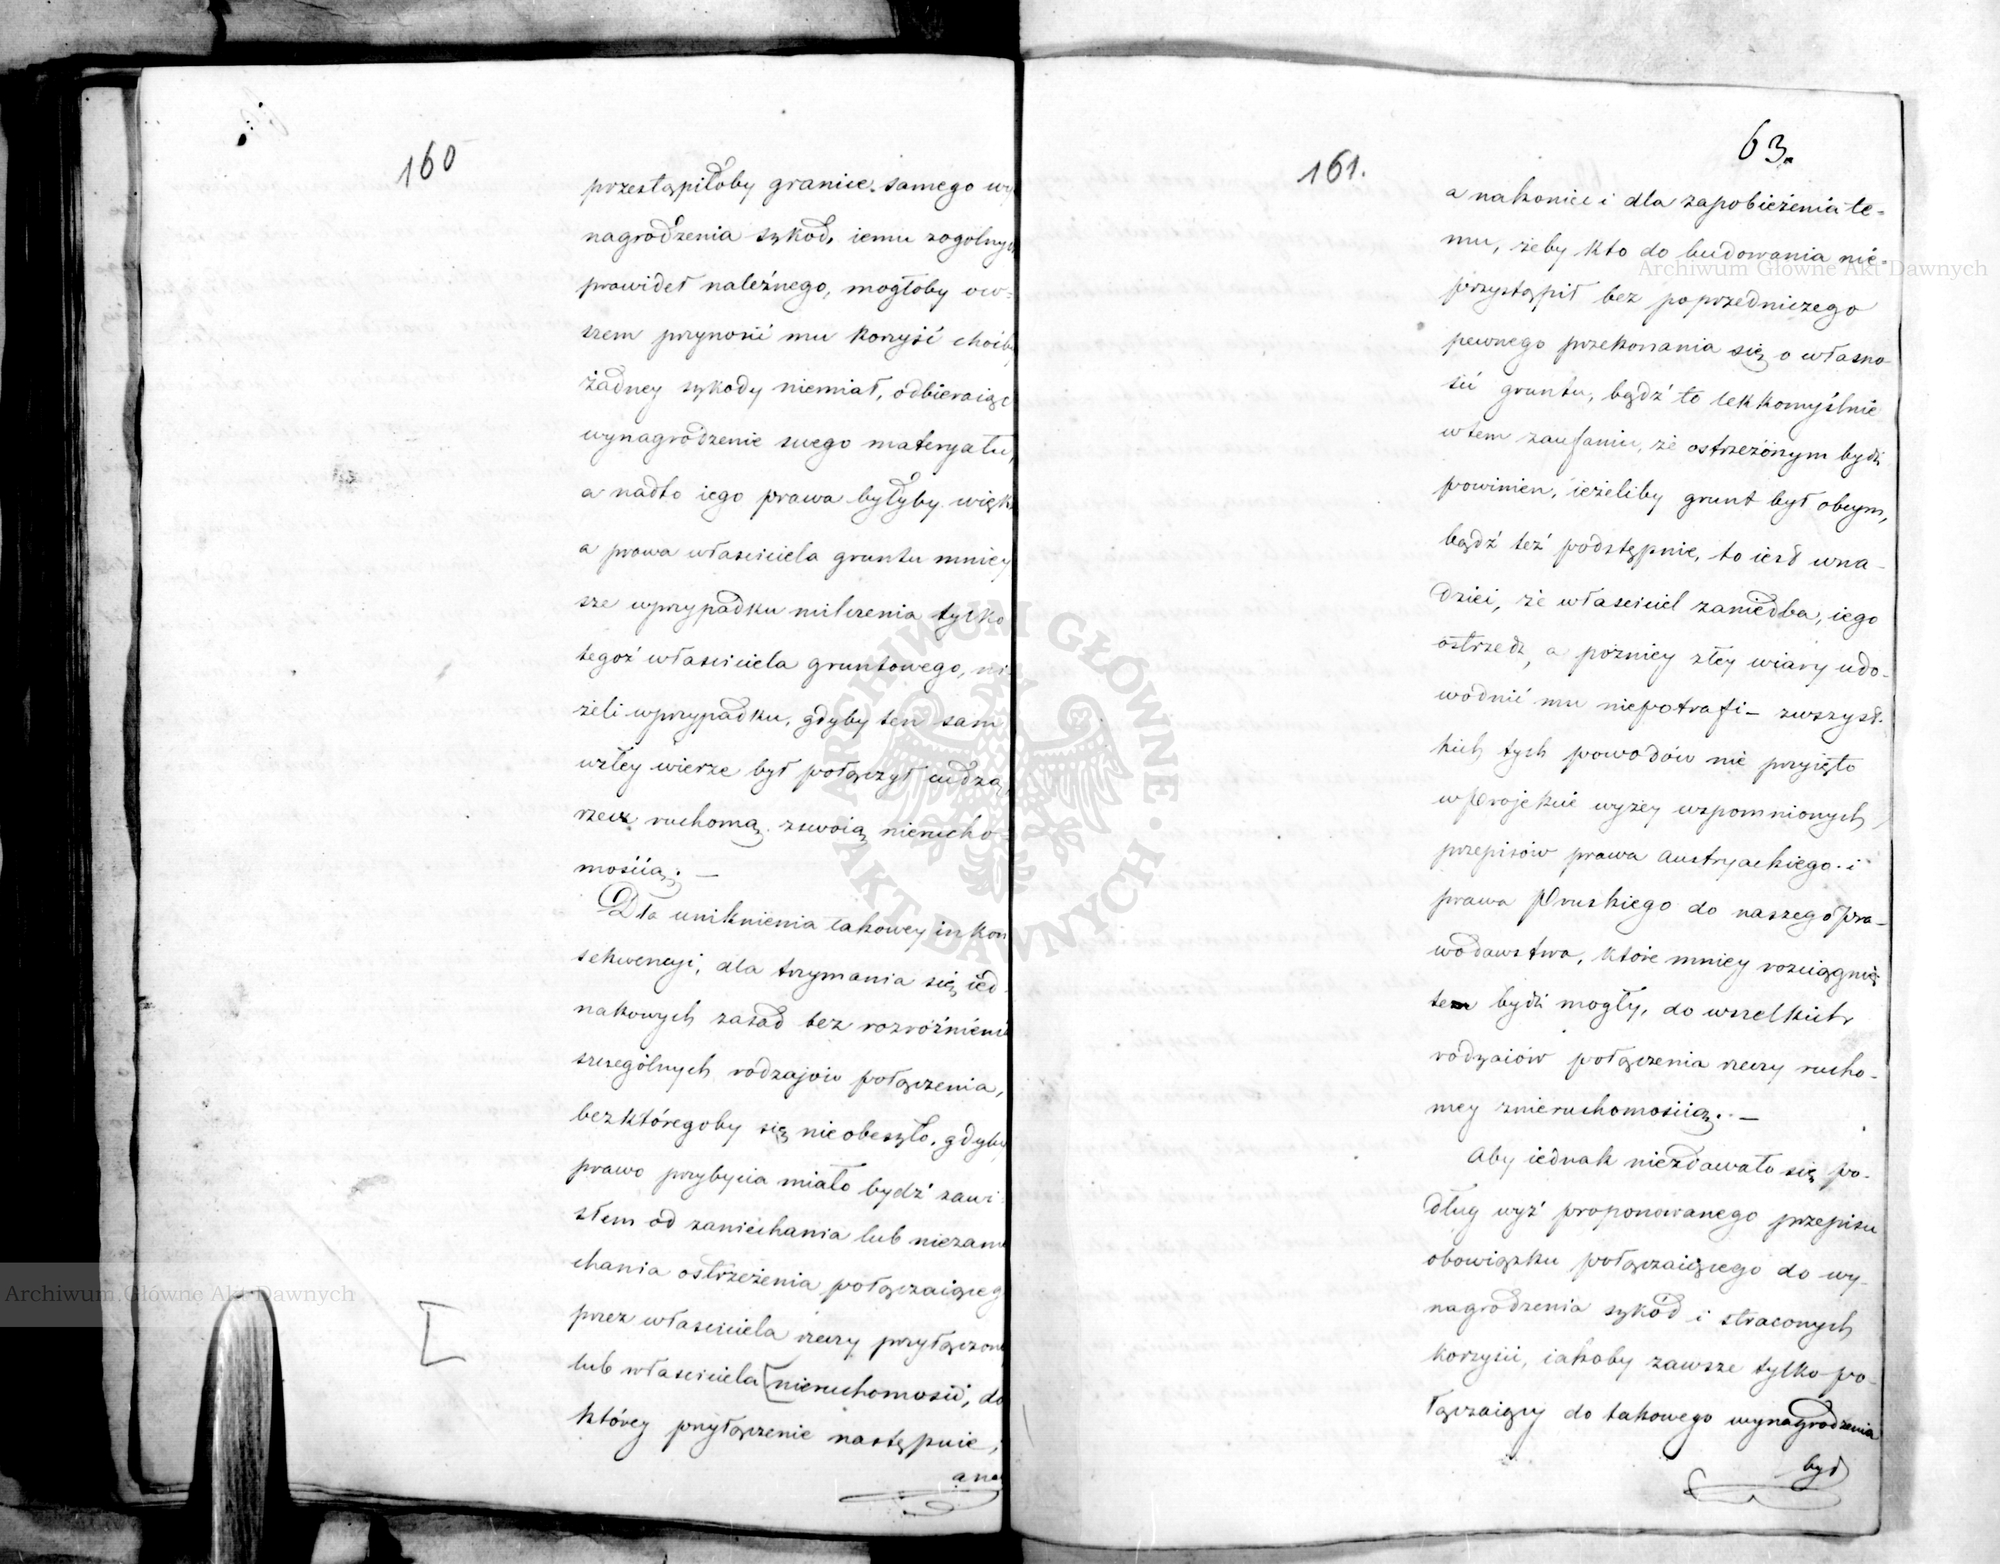 160
przestąpiłoby granice samego wy
nagrodzenia szkod, iemu zogolnych
prawideł należnego, mogłoby ow=
szem przynosić mu korzyść choćby
żadney szkody niemiał, odbieraiąc
wynagrodzenie swego materyału,
a nadto iego prawa byłyby więk
a prawa właściciela gruntu mniey
sze wprzypadku milczenia tylko
tegoż właściciela gruntowego, ni=
żeli wprzypadku, gdyby ten sam
wzłey wierze był połączył cudzą
rzecz ruchomą zswoią nierucho=
mością. —
Dla uniknienia takowey inkon
sekwencyi, dla trzymania się ied=
nakowych zasad bez rozróżnienia
szczególnych rodzajów połączenia,
bezktóregoby się nieobeszło, gdyby
prawo przybycia miało bydź zawi=
słem od zaniechania lub niezanie
chania ostrzeżenia połączaiąceg
przez właściciela rzeczy przyłączone
lub właściciela [nieruchomości, do
którey przyłączenie następuie,
a na
161.
63.
a nakoniec i dla zapobieżenia te=
mu, żeby kto do budowania nie=
przystąpił bez poprzedniczego
pewnego przekonania się o własno
ści gruntu, bądź to lekkomyślnie
wtem zaufaniu, że ostrzeżonym bydź
powinien, ieżeliby grunt był obcym,
bądź też podstępnie, to iest wna=
dziei, że właściciel zaniedba, iego
ostrzedz, a pozniey złey wiary udo=
wodnić mu niepotrafi — zwszyst=
kich tych powodów nie przyięto
wprojekcie wyżey wspomnionych
przepisów prawa Austryackiego i
prawa Pruskiego do naszego pra=
wodawstwa, które mniey rozciągnię=
tem bydź mogły, do wszelkich
rodzaiów połączenia rzeczy rucho=
mey znieruchomością. —
Aby iednak niezdawało się po=
dług wyż proponowanego przepisu
obowiązku połączaiącego do wy=
nagrodzenia szkód i straconych
korzyści, iakoby zawsze tylko po=
łączaiący do takowego wynagrodzenia
był
Archiwum Główne Akt Dawnych
Archiwum Główne Akt Dawnych
ARCHIWUM GŁÓWNE · AKT DAWNYCH ·